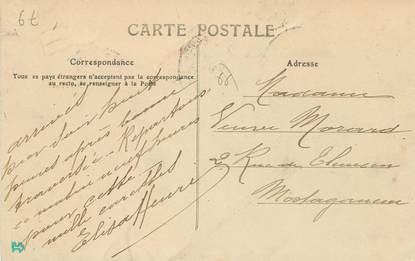 CARTE POSTALE
Correspondance
Tous les pays étrangers n'acceptent pas la correspondance
au recto, se renseigner à la Poste
arrivés
hier soir
heures après bonne
traversée - Repartons
ce matin neuf heures
pour cette
mille caresses
Elisa Henri
Adresse
Madame
Veuve Morard
2 Rue de Tlemcen
Mostaganem